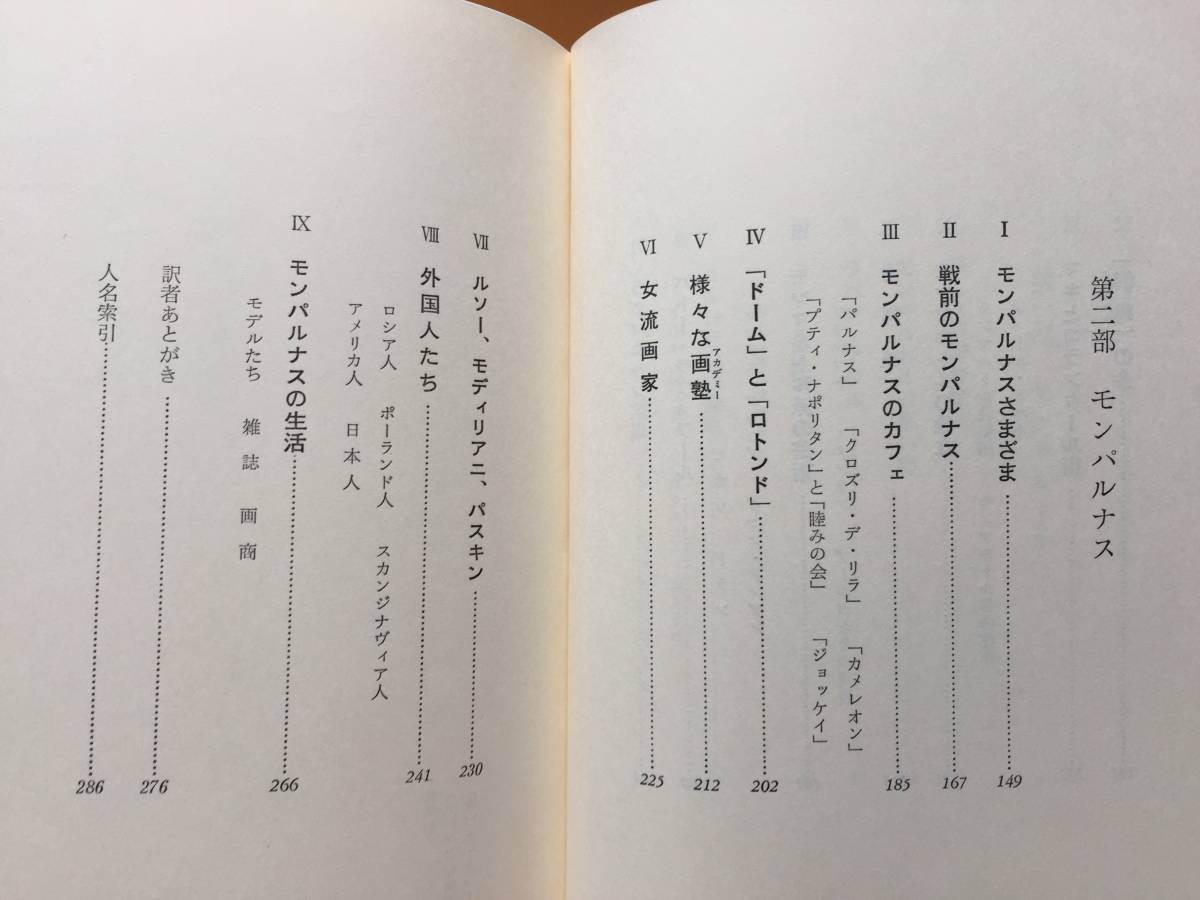 第二部　モンパルナス
Ⅰ　モンパルナスさまざま……149
Ⅱ　戦前のモンパルナス……167
Ⅲ　モンパルナスのカフェ……185
「パルナス」　「クロズリ・デ・リラ」　「カメレオン」
「プティ・ナポリタン」と「睦みの会」　「ジョッケイ」
Ⅳ　「ドーム」と「ロトンド」……202
Ⅴ　様々な画塾アカデミー……212
Ⅵ　女流画家……225
Ⅶ　ルソー、モディリアニ、パスキン……230
Ⅷ　外国人たち……241
ロシア人　ポーランド人　スカンジナヴィア人
アメリカ人　日本人
Ⅸ　モンパルナスの生活……266
モデルたち　雑誌　画商
訳者あとがき……276
人名索引……286